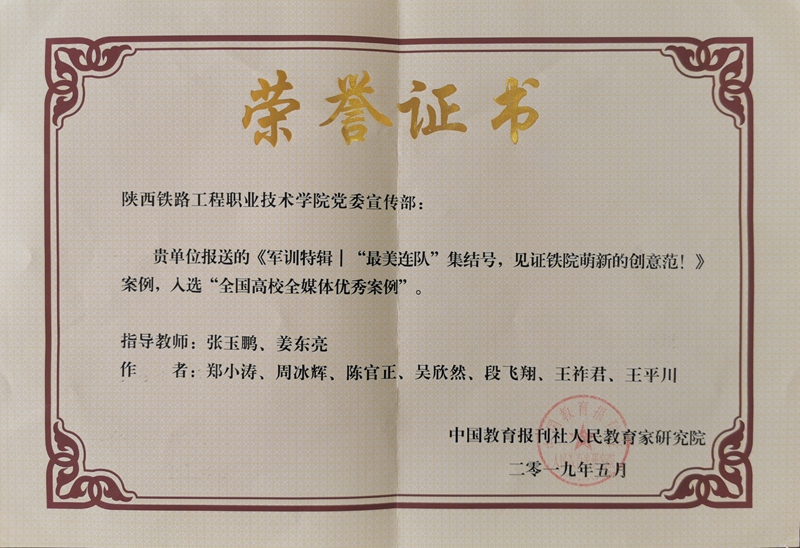 荣誉证书
陕西铁路工程职业技术学院党委宣传部：
贵单位报送的《军训特辑丨“最美连队”集结号，见证铁院萌新的创意范！》
案例，入选“全国高校全媒体优秀案例”。
指导教师：张玉鹏、姜东亮
作　　者：郑小涛、周冰辉、陈官正、吴欣然、段飞翔、王祚君、王平川
中国教育报刊社人民教育家研究院
二零一九年五月